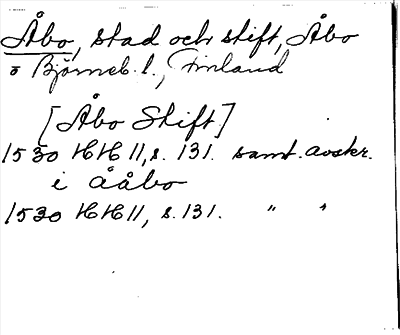 Åbo, stad och stift, Åbo
o Björneb. l., Finland
[Åbo Stift]
1530 HH 11, s. 131. samt. avskr.
i Ååbo
1530 HH 11, s. 131. " "